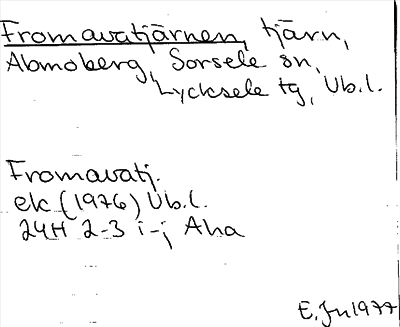 Fromavatjärnen, tjärn,
Abmoberg, Sorsele sn,
Lycksele tg, Vb.l.
Fromavatj.
ek (1976) Vb.l.
24H 2-3 i-j Aha
E. Jn 1977